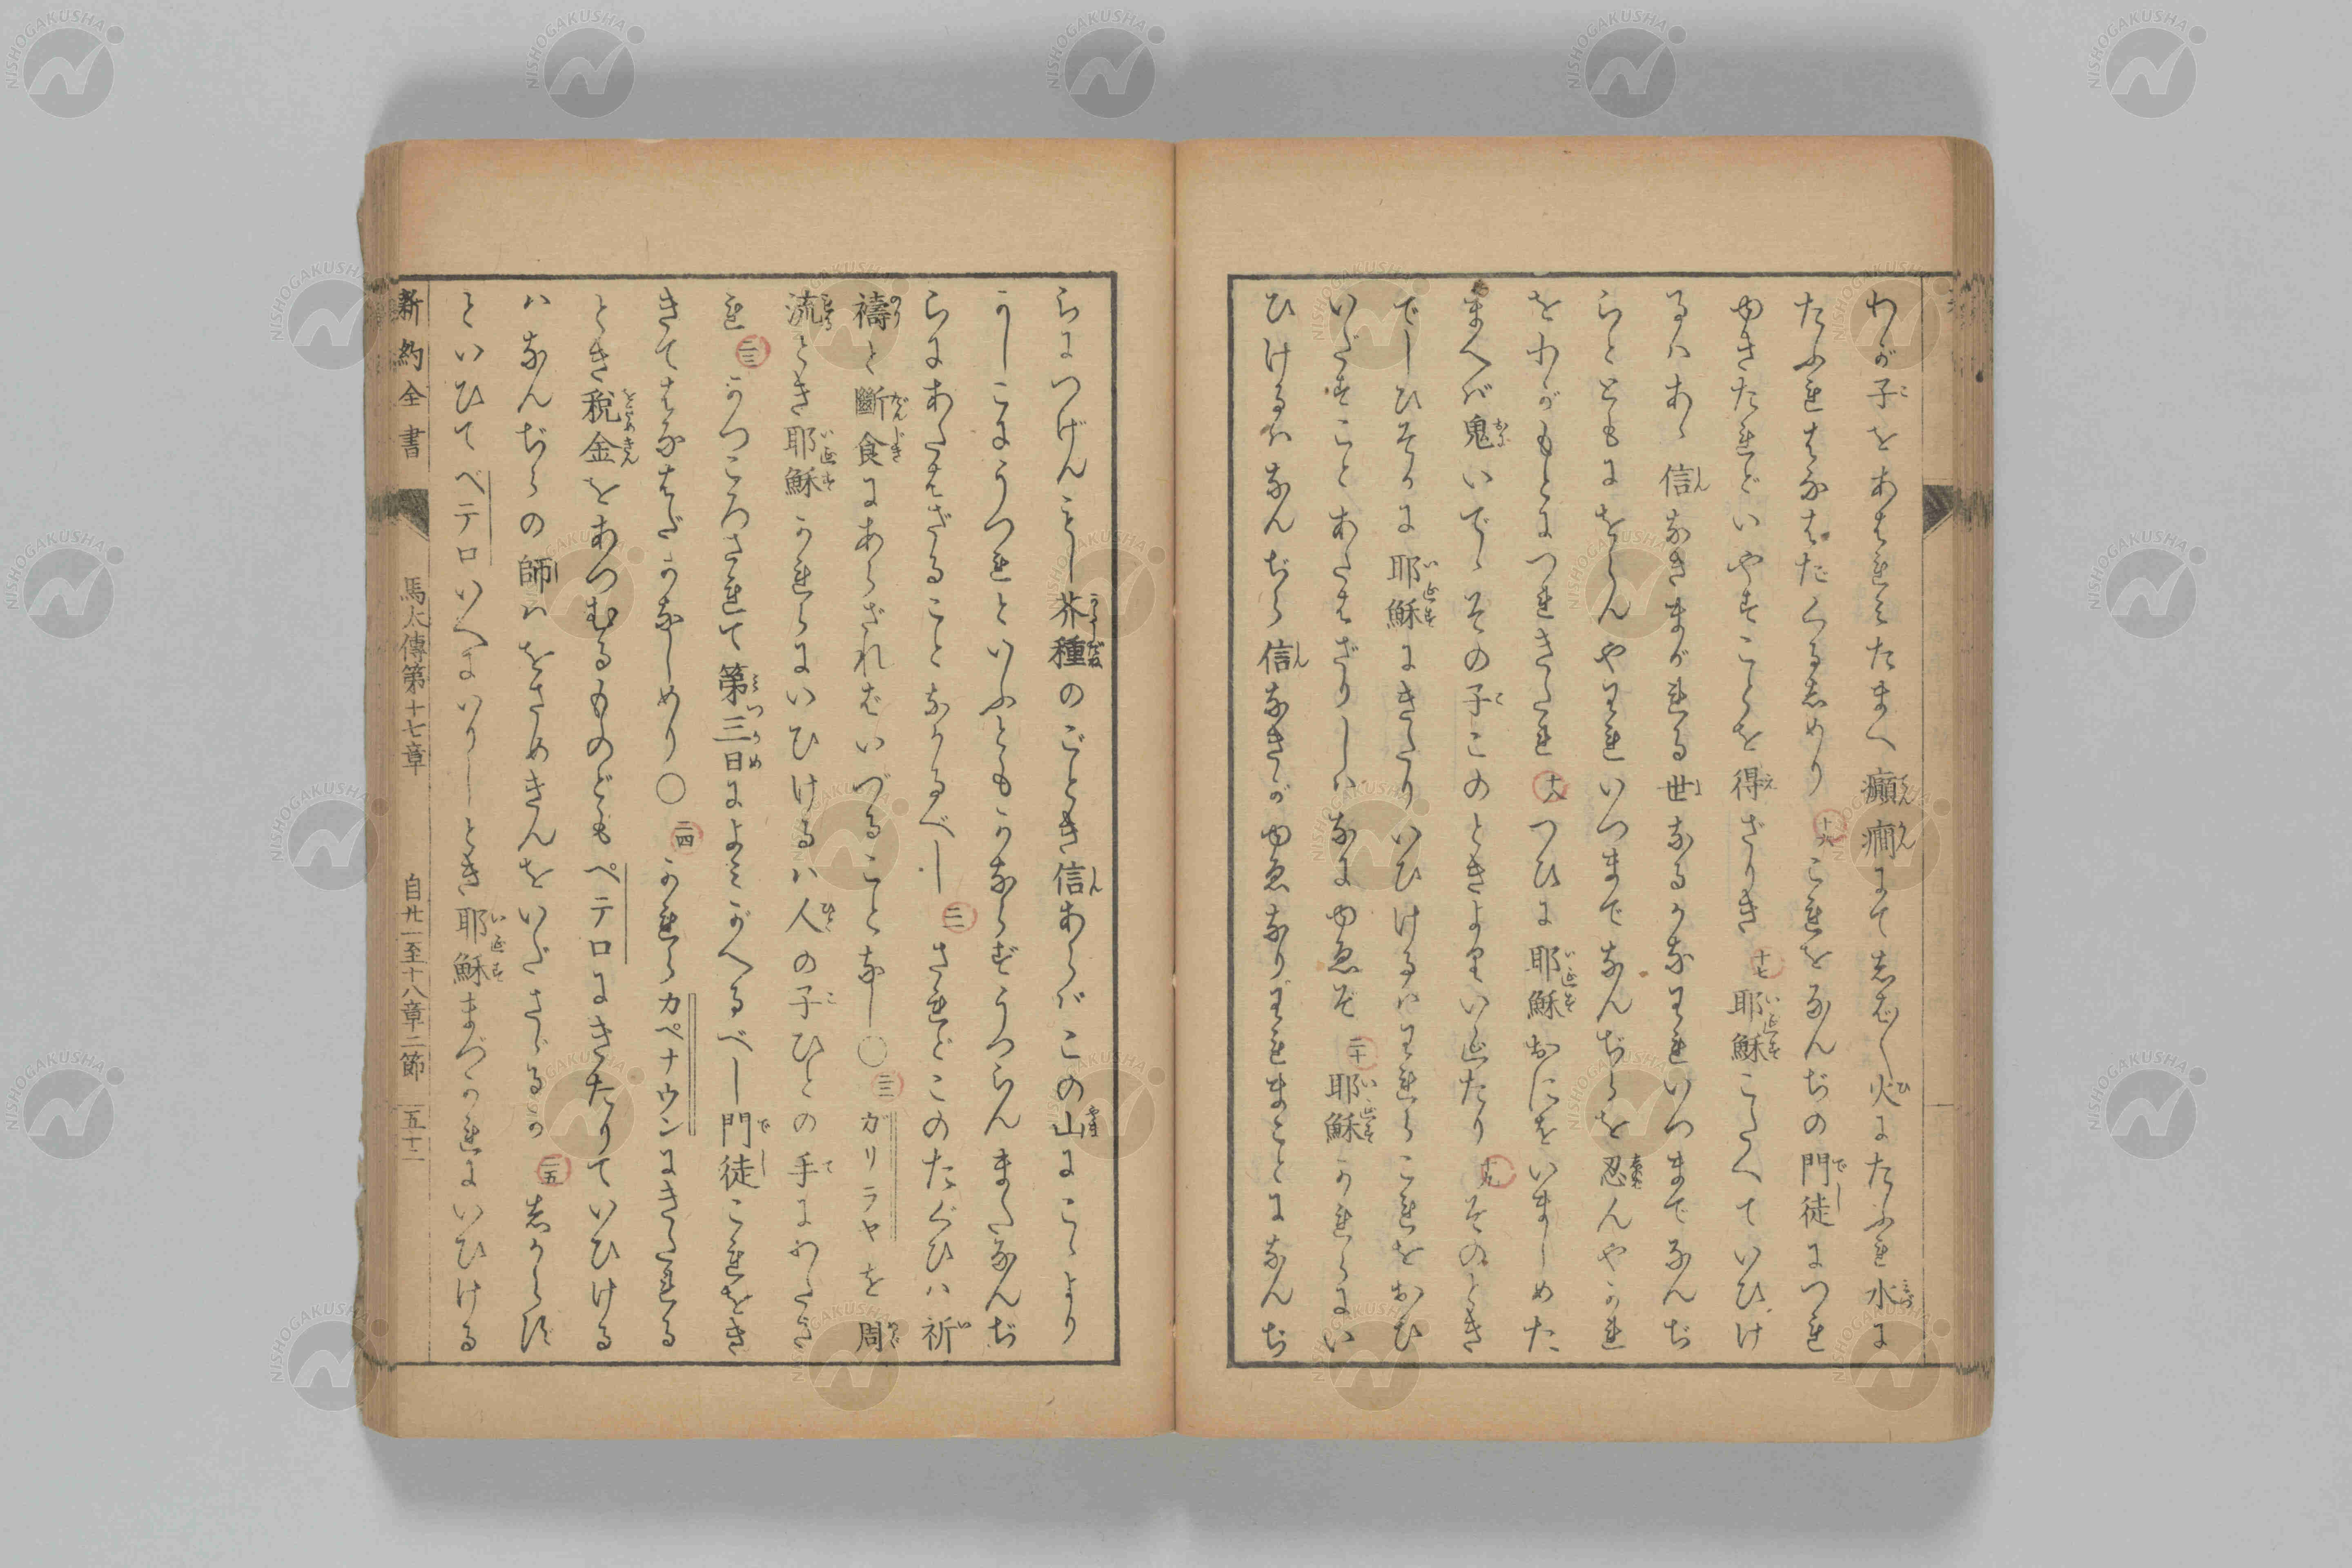 わが子をあはれみたまへ癲癇にて志ば〳〵火にたふれ水に
たふれはなはだくるしめり 十六 これをなんぢの門徒につれ
ゆきたれどいやすことを得ざりき 十七 耶穌こたへていひけ
るハあゝ信なきまがれる世なるかなわれいつまでなんぢ
らとともにをらんやわれいつまでなんぢらを忍んやかれ
をわがもとにつれきたれ 十八 つひに耶穌おにをいましめた
まへば鬼いでゝその子このときよりいえたり 十九 そのとき
でしひそかに耶穌にきたりいひけるハわれらこれをおひ
いだすことあたはざりしハなにゆゑぞ 二十 耶穌かれらにい
ひけるハなんぢら信なきがゆゑなりわれまことになんぢ
らにつげんもし芥種のごとき信あらばこの山にこゝより
かしこにうつれといふともかならずうつらんまたなんぢ
らにあたはざることなかるべし 二一 されどこのたぐひハ祈
禱と斷食にあらざればいづることなし〇 二二 ガリラヤを周
流とき耶穌かれらにいひけるハ人の子ひとの手にわたさ
れ 二三 かつころされて第三日によみがへるべし門徒これをき
きてはなはだかなしめり〇 二四 かれらカペナウンにきたれる
とき税金をあつむるものどもペテロにきたりていひける
ハなんぢらの師ハをさめきんをいださゞるか 二五 志からず
といひてペテロいへにいりしとき耶穌まづかれにいひける
新約全書 馬太傳第十七章 自廿一至十八章二節 五十二
NISHOGAKUSHA